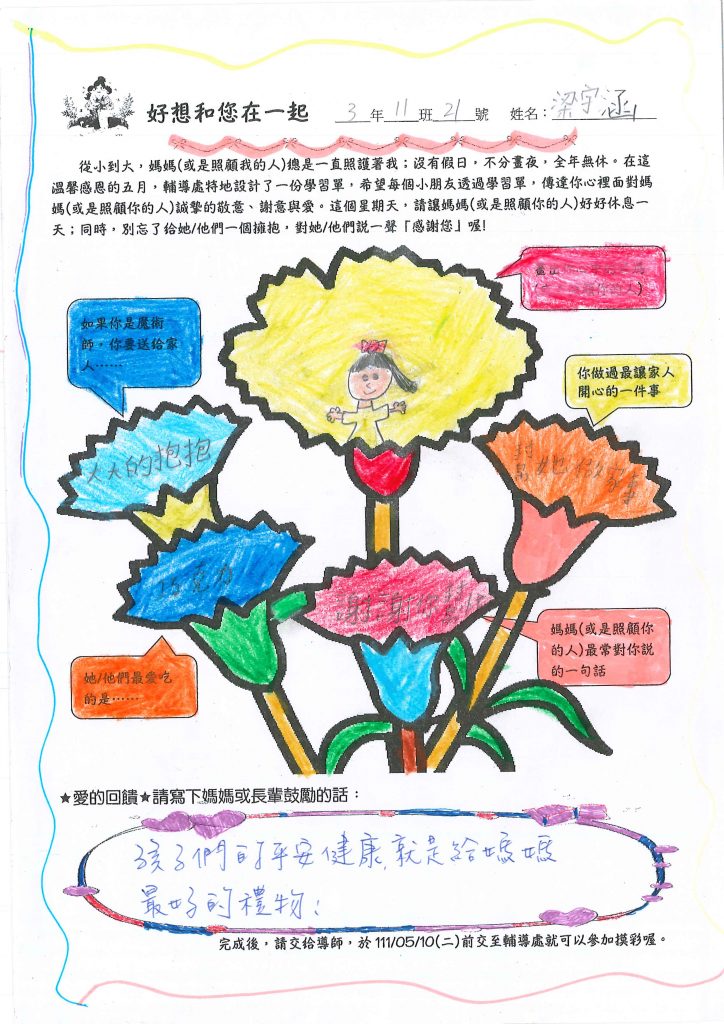 好想和您在一起 3年11班21號 姓名:梁宇涵
從小到大,媽媽(或是照顧我的人)總是一直照護著我;沒有假日,不分晝夜,全年無休。在這
溫馨感恩的五月,輔導處特地設計了一份學習單,希望每個小朋友透過學習單,傳達你心裡面對媽
媽(或是照顧你的人)誠摯的敬意、謝意與愛。這個星期天,請讓媽媽(或是照顧你的人)好好休息一
天;同時,別忘了給她/他們一個擁抱,對她/他們說一聲「感謝您」喔!
畫出
人)
如果你是魔術
師,你要送給家
人……
你做過最讓家人
開心的一件事
大大的抱抱
幫她做家事
巧克力
謝謝你幫忙
她/他們最愛吃
的是……
媽媽(或是照顧你
的人)最常對你說
的一句話
★愛的回饋★請寫下媽媽或長輩鼓勵的話:
孩子們的平安健康,就是給媽媽
最好的禮物!
完成後,請交給導師,於 111/05/10(二)前交至輔導處就可以參加摸彩喔。